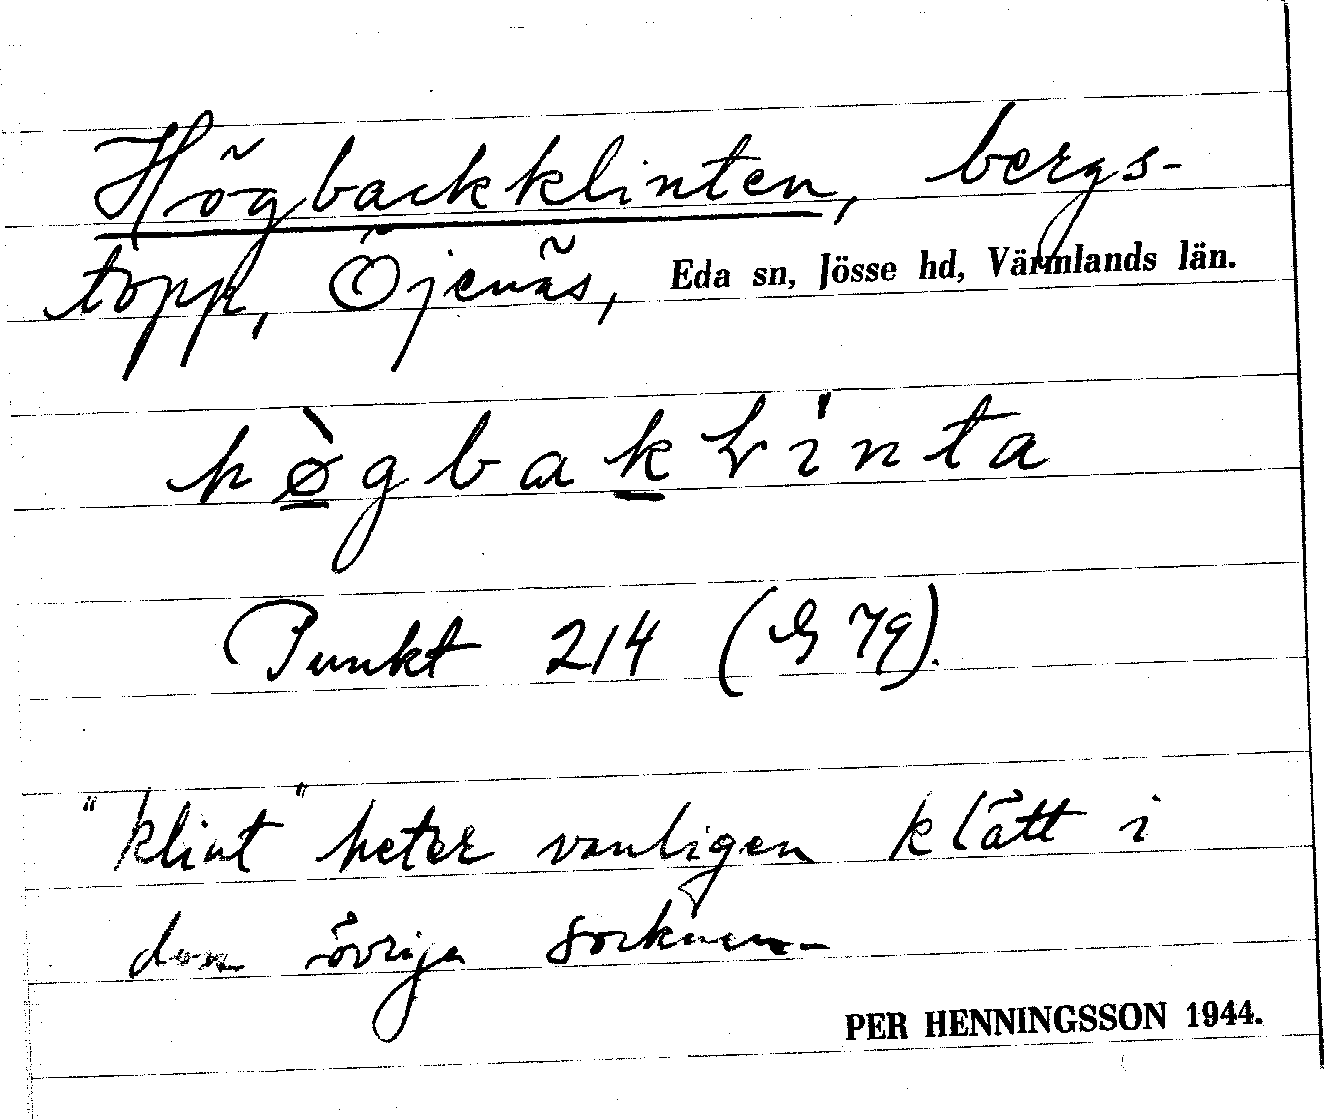 Högbackklinten, bergs-
topp, Öjenäs, Eda sn, Jösse hd, Värmlands län.
Punkt 214 (G 79).
"klint" heter vanligen klätt i
den övriga socknen.
PER HENNINGSSON 1944.